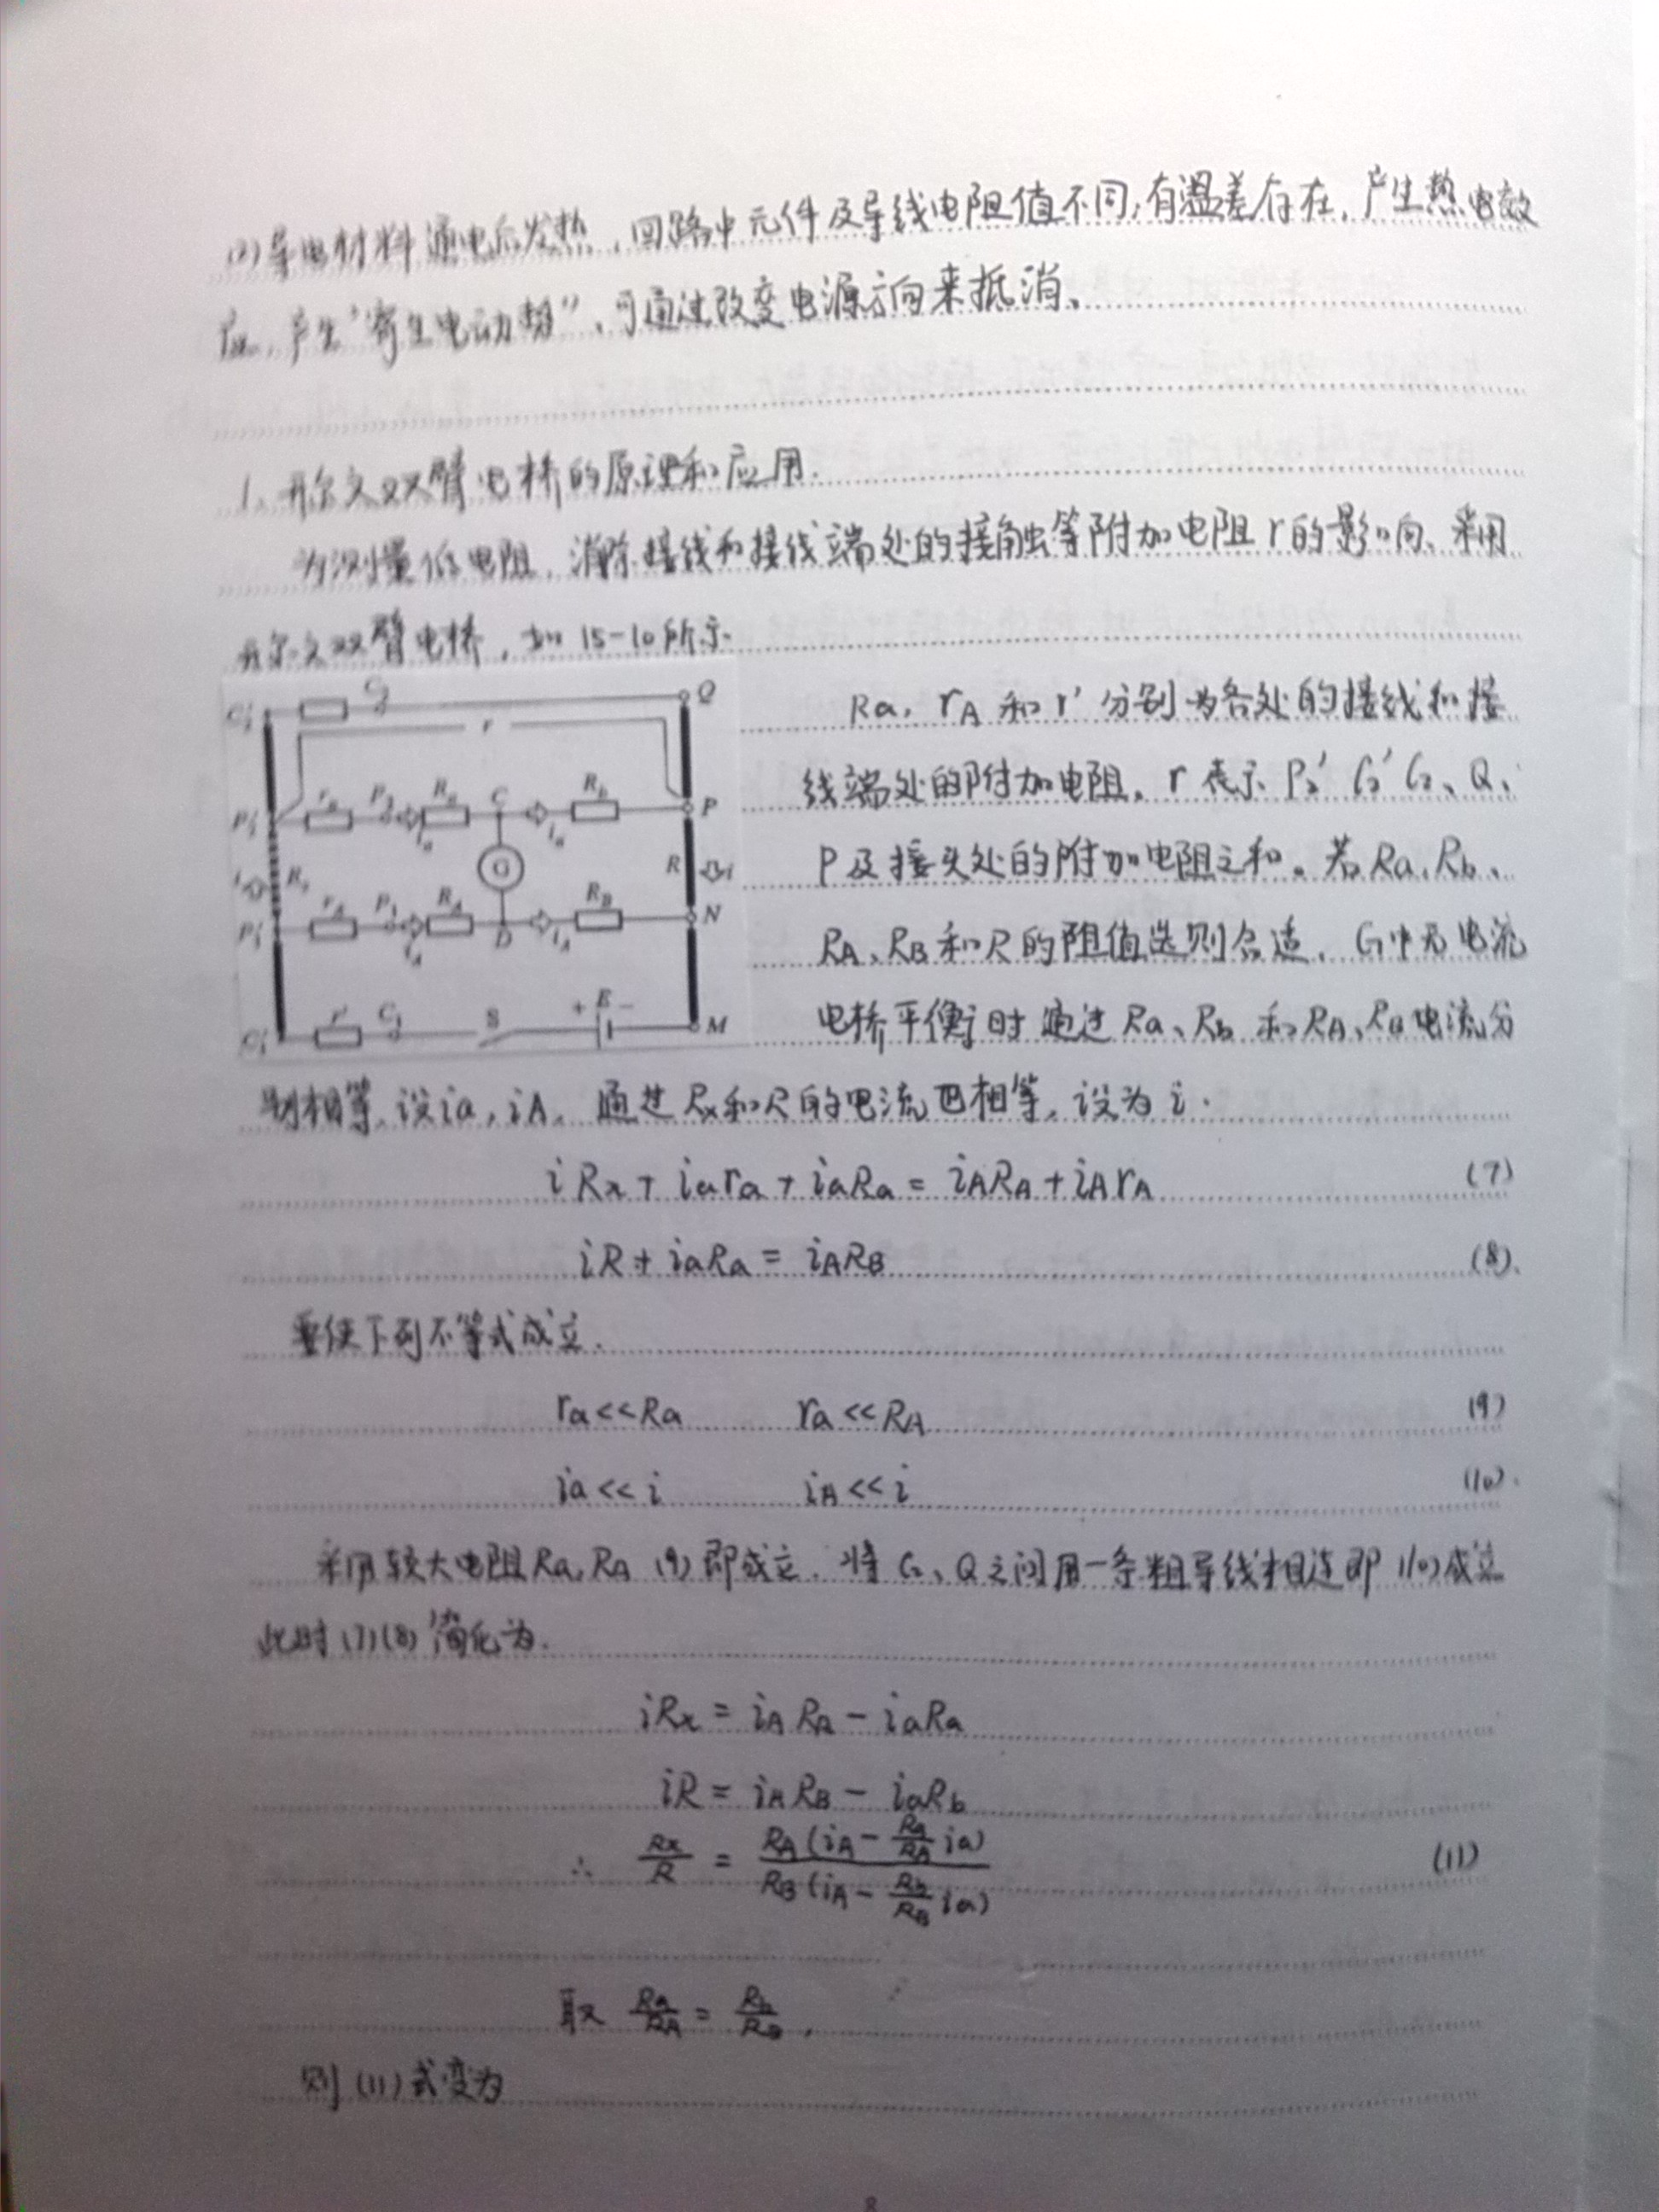 (2)导电材料通电后发热,回路中元件及导线电阻值不同,有温差存在,产生热电效
应,产生"寄生电动势",可通过改变电源方向来抵消、
1、开尔文双臂电桥的原理和应用.
为测量低电阻,消除接线和接线端处的接触等附加电阻r的影响、采用
开尔文双臂电桥,如15-10所示.
C₂' C₂ Q
r
P₂' rₐ P₂ Rₐ C R_b P
iₐ iₐ
i Rₓ G R i
P₁' r_A P₁ R_A D R_B N
i_A i_A
C₁' r' C₁ S + E - M
Ra,rA和r'分别为各处的接线和接
线端处的附加电阻,r表示P₂'C₂'C₂、Q、
P及接头处的附加电阻之和。若Ra、Rb、
RA、RB和R的阻值选则合适、G中无电流
电桥平衡时通过Ra、Rb和RA、RB电流分
别相等,设ia,iA、通过Rx和R的电流也相等,设为i.
iRx+iara+iaRa=iARA+iArA (7)
iR+iaRa=iARB (8)、
要使下列不等式成立.
ra<<Ra ra<<RA (9)
ia<<i iA<<i (10).
采用较大电阻Ra,RA (9)即成立.将C₂、Q之间用一条粗导线相连即(10)成立
此时(7)(8)简化为.
iRx=iARA-iaRa
iR=iARB-iaRb
∴ Rx/R = RA(iA-Ra/RA ia) / RB(iA-Rb/RB ia) (11)
取 Ra/RA = Rb/RB,
则(11)式变为
8